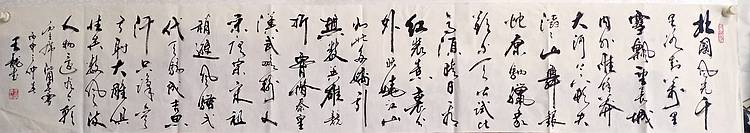 北國风光千
里冰封万里
雪飘望长城
内外惟余莽
大河上下顿失
滔滔山舞银
蛇原驰蜡象
欲与天公试比
高须晴日看
红装素裹分
外妖娆江山
如此多娇引
无数英雄竞
折腰惜秦皇
汉武略输文
采唐宗宋祖
稍逊风骚一
代天骄成吉思
汗只识弯弓
射大雕俱
往矣数风流
人物还看今朝